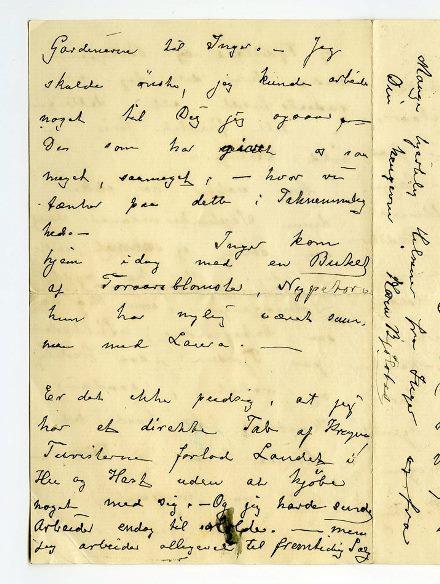 Gardinerne til Inger. – Jeg
skulde ønske, jeg kunde arbeide
noget til Dig jeg ogsaa, –
Du som har givet os saa
meget, saameget, – hvor vi
tænker paa dette i Taknemmelig
hed. – Inger kom
hjem idag med en Buket
af Foraarsblomster, Nypetorn
hun har nylig været sam-
men med Laura. –
Er det ikke pudsig, at jeg
har et direkte Tab af Krigen,
Turisterne forlod Landet i
Hu og Hast uden at kjøbe
noget med sig. – Og jeg havde
Arbeider endog til – men
jeg arbeider alligevel til fremtidig Salg
Mange hjertelig Hilsener fra Inger og fra
Din hengivne